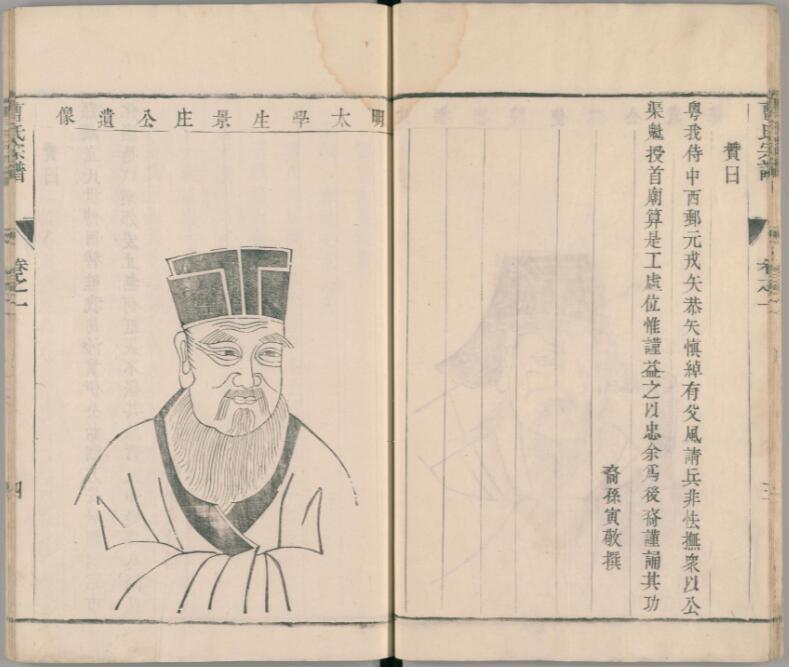 曹氏宗譜
卷之一
三
贊曰
粵我侍中西郵元戎矢恭矢慎綽有父風請兵非怯撫衆以公
渠魁授首廟算是工虛位惟謹益之以忠余爲後裔謹誦其功
裔孫寅敬撰
明太學生景庄公遺像
曹氏宗譜
卷之一
四